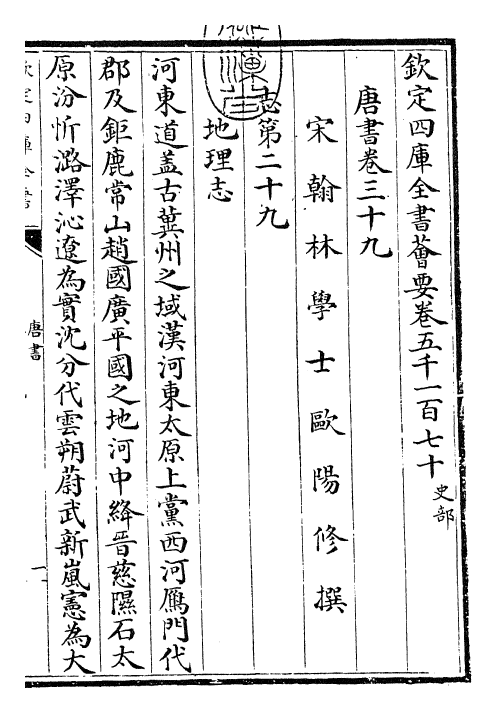 欽定四庫全書薈要卷五千一百七十 史部
唐書卷三十九
宋翰林學士歐陽修撰
志第二十九
地理志
河東道蓋古冀州之域漢河東太原上黨西河鴈門代
郡及鉅鹿常山趙國廣平國之地河中絳晉慈隰石太
原汾忻潞澤沁遼為實沈分代雲朔蔚武新嵐憲為大
唐書